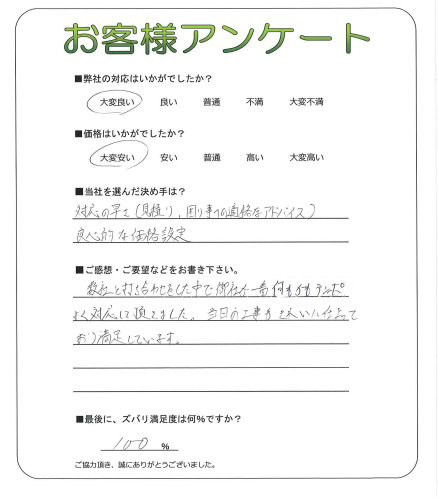 お客様アンケート
■弊社の対応はいかがでしたか？
大変良い 良い 普通 不満 大変不満
■価格はいかがでしたか？
大変安い 安い 普通 高い 大変高い
■当社を選んだ決め手は？
対応の早さ(見積り、困り事への適格なアドバイス)
良心的な価格設定
■ご感想・ご要望などをお書き下さい。
数社と打ち合わせをした中で御社が一番何もかもテンポ
よく対応して頂きました。当日の工事もきれいに仕上って
おり満足しています。
■最後に、ズバリ満足度は何%ですか？
100 %
ご協力頂き、誠にありがとうございました。